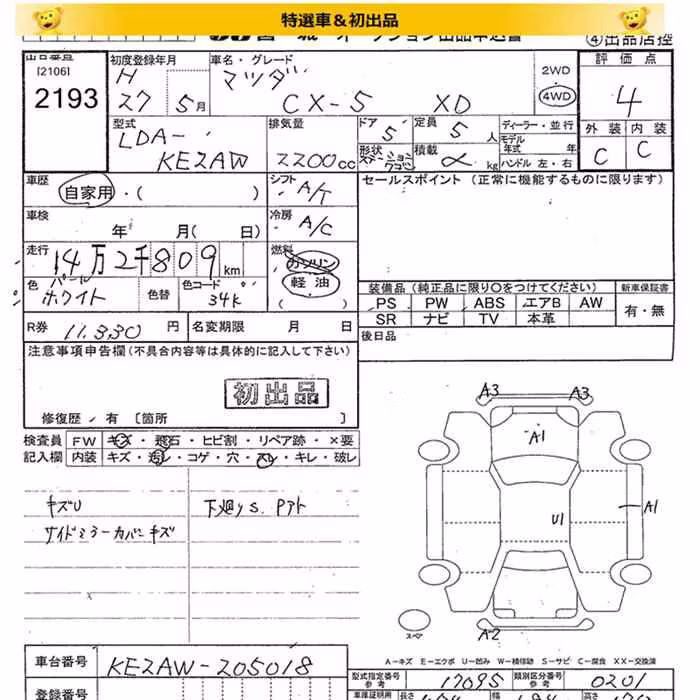 特選車＆初出品
④出品店控
出品番号
[2106]
2193
初度登録年月
H
27 5月
車名・グレード
マツダ
CX-5 XD
2WD
4WD
評価点
4
外装 内装
C C
型式
LDA-
KE2AW
排気量
2200cc
ドア
5
形状
定員
5人
積載
kg
ディーラー・並行
モデル年式 年
ハンドル 左・右
車歴
自家用・( )
シフト
A/T
セールスポイント (正常に機能するものに限ります)
車検
年 月( 日)
冷房
A/C
走行
14万2千809km
燃料
ガソリン
軽油
色 パール
ホワイト
色替
色コード
34K
装備品 (純正品に限り○をつけてください)
新車保証書
PS PW ABS エアB AW
SR ナビ TV 本革
有・無
R券 11,330円
名変期限 月 日
後日品
注意事項申告欄 (不具合内容等は具体的に記入して下さい)
初出品
修復歴 有 [箇所 ]
検査員 FW キズ・飛石・ヒビ割・リペア跡・×要
記入欄 内装 キズ・汚レ・コゲ・穴・スレ・キレ・破レ
キズU
サイドミラーカバーキズ
下廻りS. Pアト
A3 A3
A1
A1
U1
スペア
A2
A-キズ E-エクボ U-凹み W-補修跡 S-サビ C-腐食 XX-交換済
車台番号 KE2AW-205018
型式指定番号 参考 17095
類別区分番号 参考 0201
登録番号
車庫証明用 長さ 幅 高さ